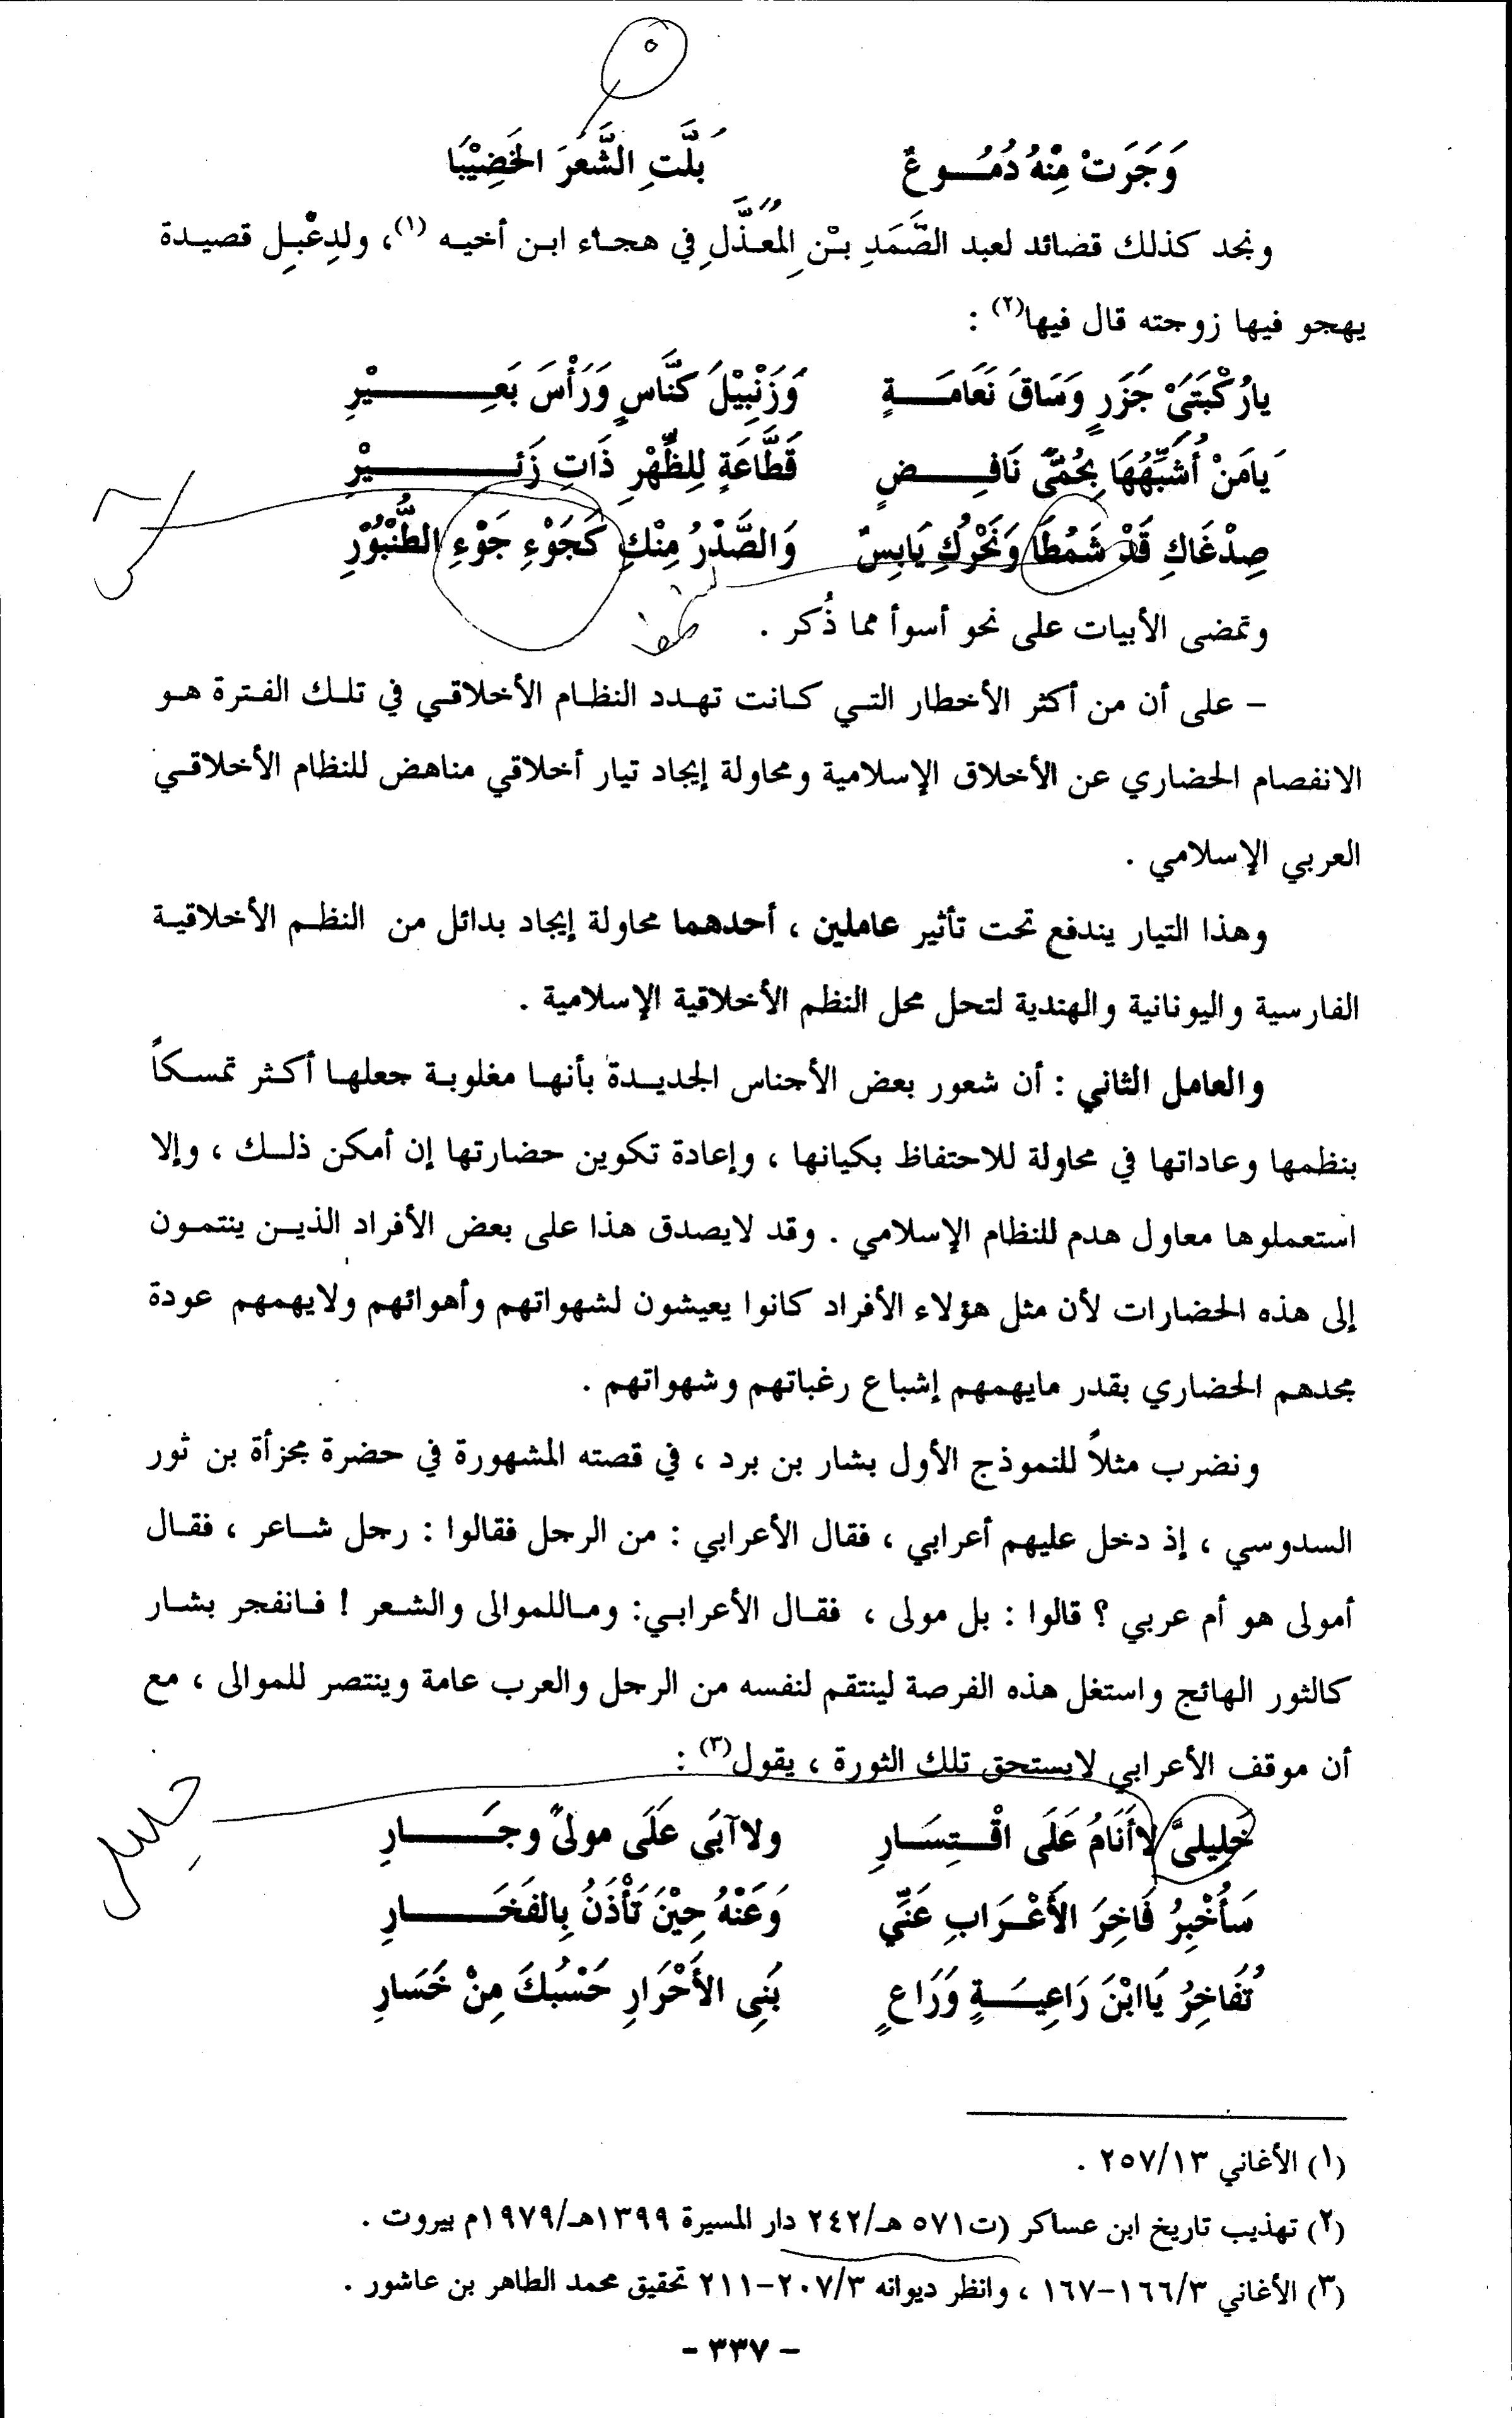 وَجَرَتْ مِنْهُ دُمُـــوعٌ بَلَّتِ الشَّعْرَ الخَضِيْبَا
ونجد كذلك قصائد لعبد الصَّمَدِ بـْنِ المُعَـذَّلِ في هجـاء ابـن أخيـه (١)، ولدِعْبـِلِ قصيـدة
يهجو فيها زوجته قال فيها(٢) :
يارُكْبَتَيْ جَزَرٍ وَسَاقَ نَعَامَـــةٍ وَزَنْبِيْلَ كنَّاسٍ وَرَأْسَ بَعِــــــيْرِ
يامَنْ أُشَبِّهُهَا بِحُمَّى نَافِـــضٍ قَطَّاعَةٍ لِلظَّهْرِ ذَاتِ زَئــــــيْرِ
صِدْغَاكِ قَدْ شَمُطَا وَنَحْرُكِ يَابِسٌ وَالصَّدْرُ مِنْكِ كَجَوْءِ جَوْءِ الطُّنْبُوْرِ
وتمضى الأبيات على نحو أسوأ مما ذُكر .
– على أن من أكثر الأخطار التـي كـانت تهـدد النظـام الأخلاقـي في تلـك الفـترة هـو
الانفصام الحضاري عن الأخلاق الإسلامية ومحاولة إيجاد تيار أخلاقي مناهض للنظام الأخلاقـي
العربي الإسلامي .
وهذا التيار يندفع تحت تأثير عاملين ، أحدهما محاولة إيجاد بدائل من النظـم الأخلاقيـة
الفارسية واليونانية والهندية لتحل محل النظم الأخلاقية الإسلامية .
والعامل الثاني : أن شعور بعض الأجناس الجديـدة بأنهـا مغلوبـة جعلهـا أكـثر تمسـكاً
بنظمها وعاداتها في محاولة للاحتفاظ بكيانها ، وإعادة تكوين حضارتها إن أمكن ذلـك ، وإلا
استعملوها معاول هدم للنظام الإسلامي . وقد لايصدق هذا على بعض الأفراد الذيـن ينتمـون
إلى هذه الحضارات لأن مثل هؤلاء الأفراد كانوا يعيشون لشهواتهم وأهوائهم ولايهمهم عودة
مجدهم الحضاري بقدر مايهمهم إشباع رغباتهم وشهواتهم .
ونضرب مثلاً للنموذج الأول بشار بن برد ، في قصته المشهورة في حضرة مجزأة بن ثور
السدوسي ، إذ دخل عليهم أعرابي ، فقال الأعرابي : من الرجل فقالوا : رجل شـاعر ، فقـال
أمولى هو أم عربي ؟ قالوا : بل مولى ، فقـال الأعرابـي: ومـاللموالى والشـعر ! فـانفجر بشـار
كالثور الهائج واستغل هذه الفرصة لينتقم لنفسه من الرجل والعرب عامة وينتصر للموالى ، مع
أن موقف الأعرابي لايستحق تلك الثورة ، يقول(٣) :
خَلِيلىَّ لاأَنَامُ عَلَى اقْـتِسَـارِ ولاآبَى عَلَى مولىً وجَـــــارِ
سَأُخْبِرُ فَاخِرَ الأَعْـرَابِ عَنِّي وَعَنْهُ حِيْنَ تَأْذَنُ بِالفَخَـــــارِ
تُفَاخِرُ يَاابْنَ رَاعِيَـــةٍ وَرَاعٍ بَنِى الأَحْرَارِ حَسْبُكَ مِنْ خَسَارِ
(١) الأغاني ٢٥٧/١٣ .
(٢) تهذيب تاريخ ابن عساكر (ت٥٧١ هـ/٢٤٢ دار المسيرة ١٣٩٩هـ/١٩٧٩م بيروت .
(٣) الأغاني ١٦٦/٣-١٦٧ ، وانظر ديوانه ٢٠٧/٣-٢١١ تحقيق محمد الطاهر بن عاشور .
- ٣٣٧ -